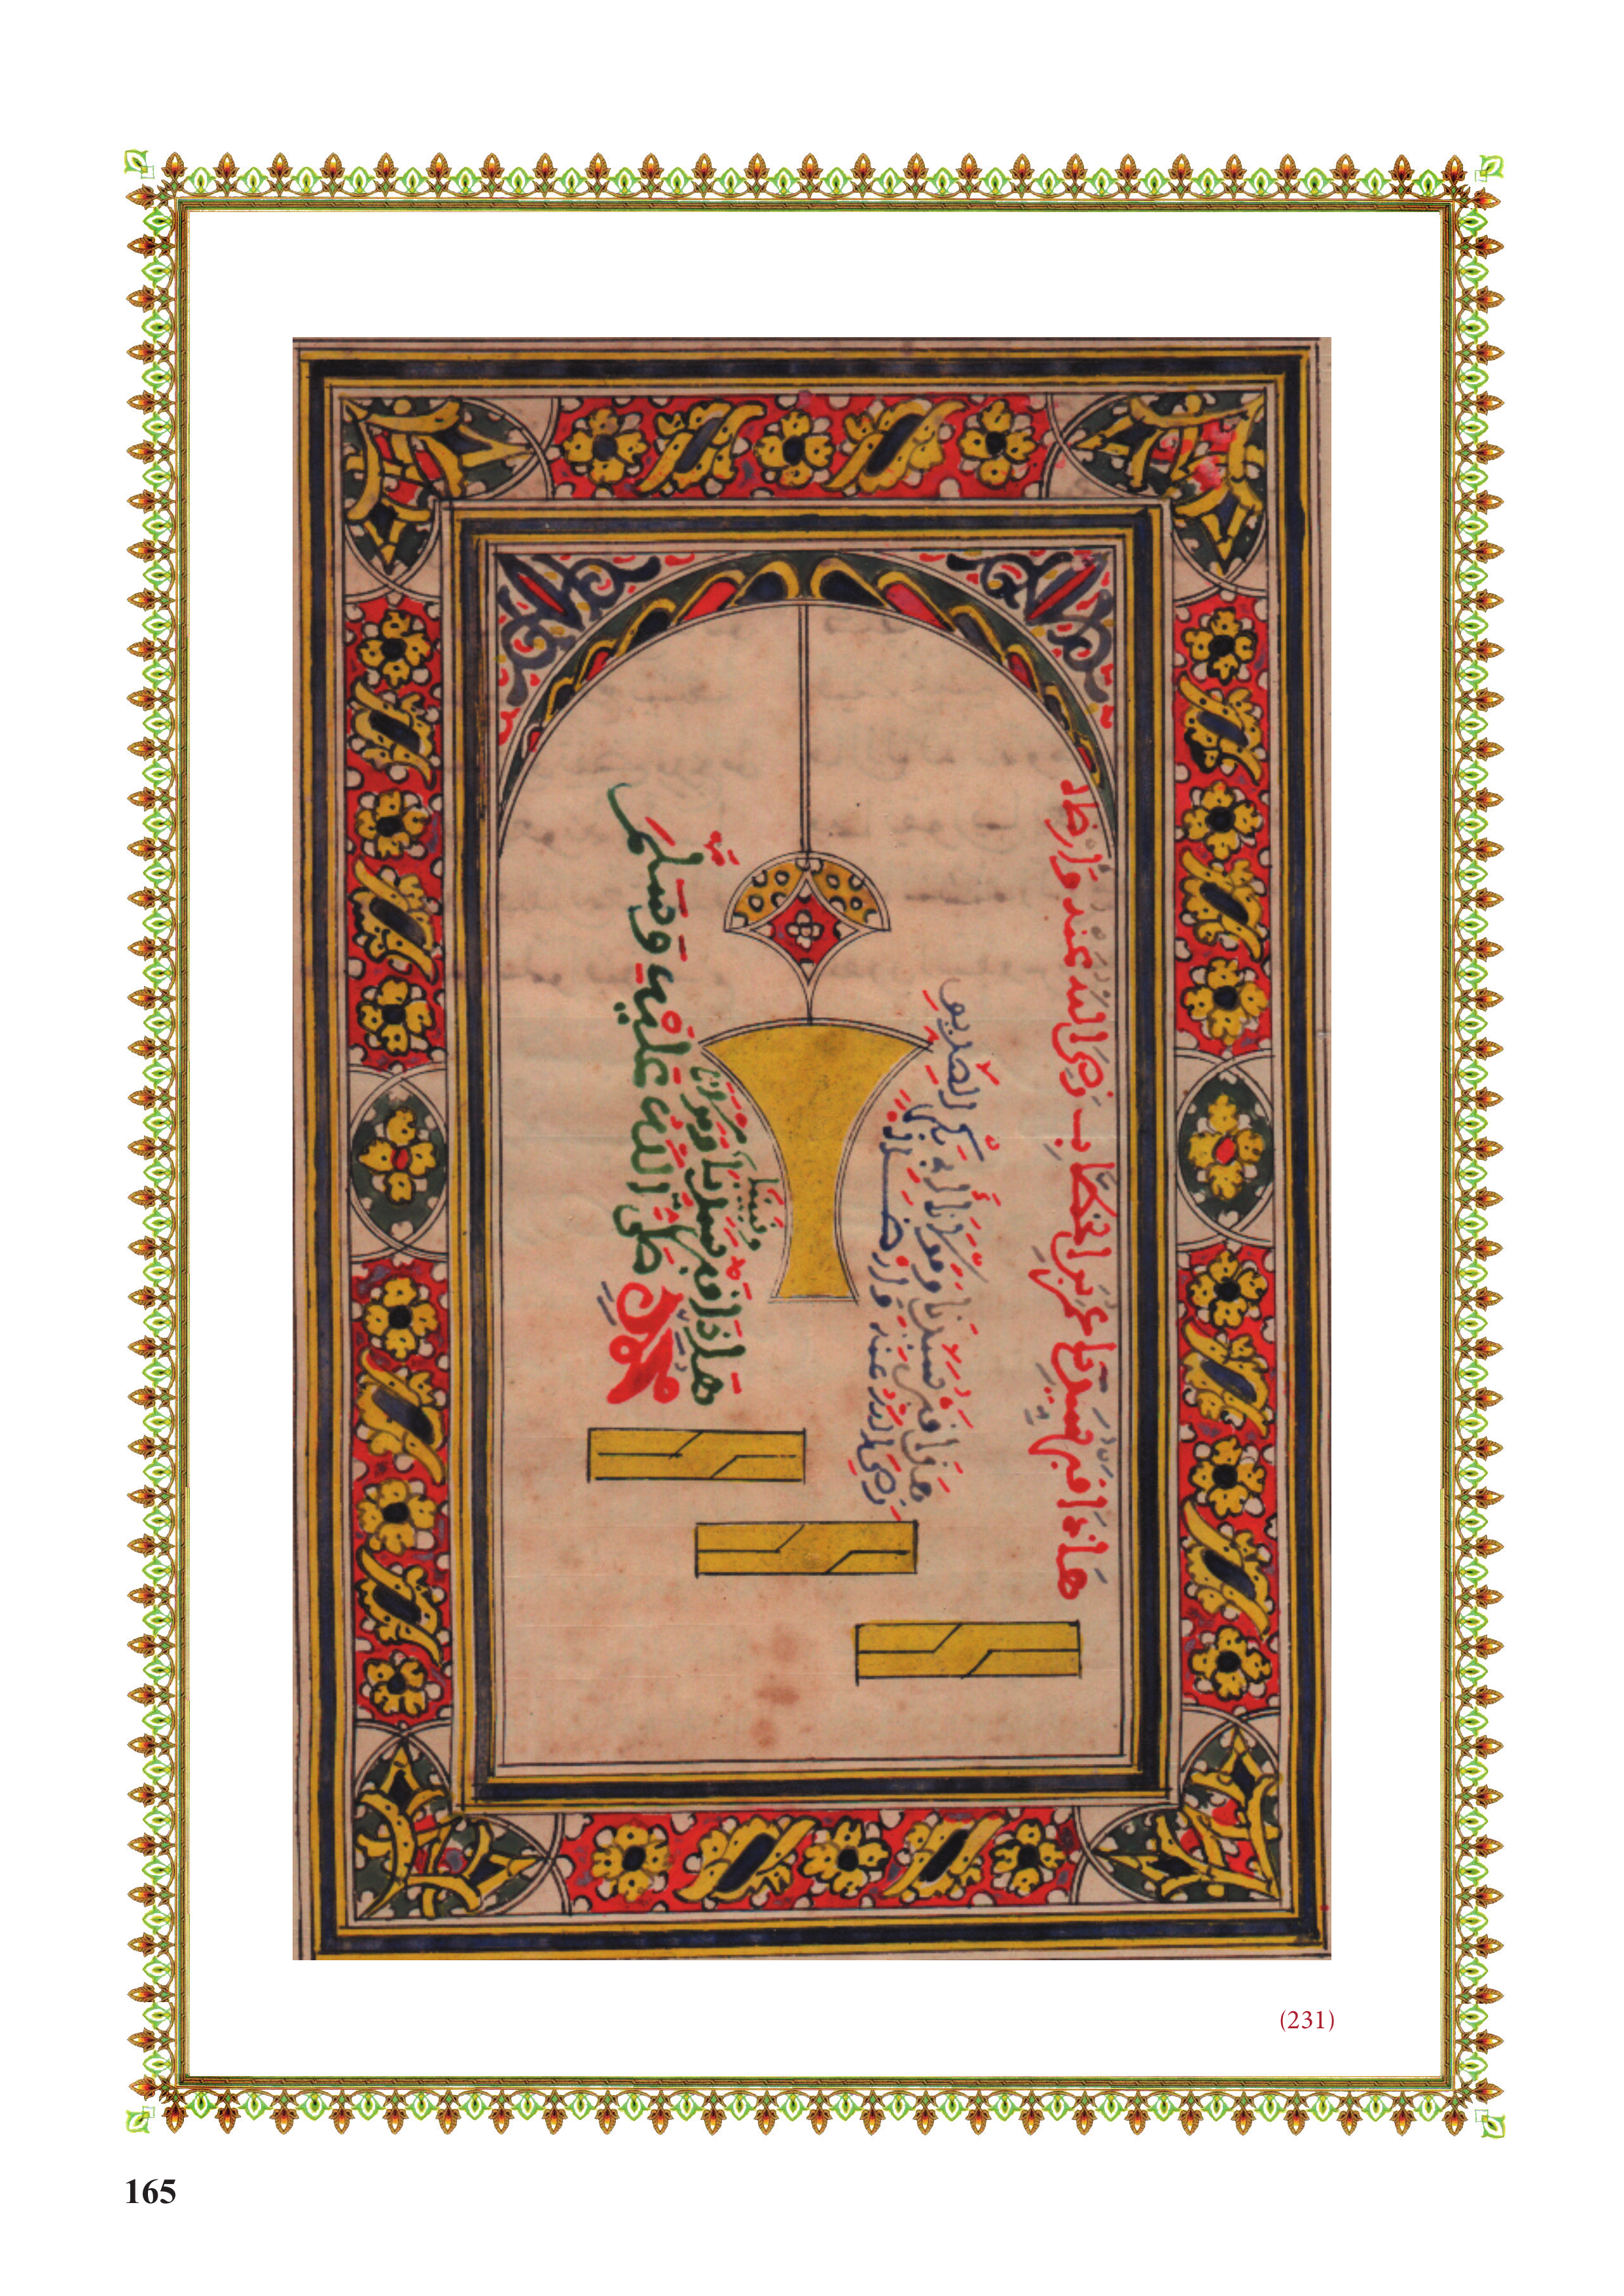 هاذا قبر سيدنا عمر بن الخطاب رضي الله عنه وارضاه
هاذا قبر سيدنا ومولانا ابي بكر الصديق
رضي الله عنه وارضاه
هاذا قبر سيدنا ومولانا ونبينا
محمد صلى الله عليه وسلم
(231)
165